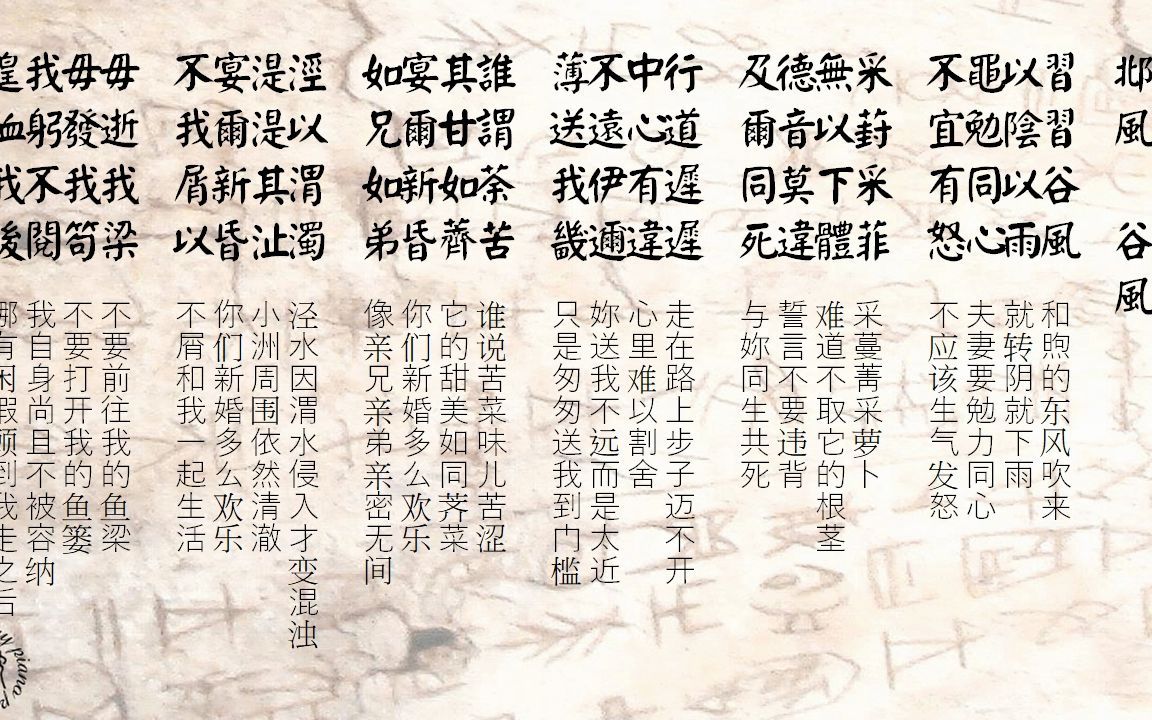 邶風 谷風
習習谷風
以陰以雨
黽勉同心
不宜有怒
采葑采菲
無以下體
德音莫違
及爾同死
行道遲遲
中心有違
不遠伊邇
薄送我畿
誰謂荼苦
其甘如薺
宴爾新昏
如兄如弟
涇以渭濁
湜湜其沚
宴爾新昏
不我屑以
毋逝我梁
毋發我笱
我躬不閱
遑恤我後
和煦的东风吹来
就转阴就下雨
夫妻要勉力同心
不应该生气发怒
采蔓菁采萝卜
难道不取它的根茎
誓言不要违背
与妳同生共死
走在路上步子迈不开
心里难以割舍
妳送我不远而是太近
只是匆匆送我到门槛
谁说苦菜味儿苦涩
它的甜美如同荠菜
你们新婚多么欢乐
像亲兄亲弟亲密无间
泾水因渭水侵入才变混浊
小洲周围依然清澈
你们新婚多么欢乐
不屑和我一起生活
不要前往我的鱼梁
不要打开我的鱼篓
我自身尚且不被容纳
哪有闲暇顾到我走之后
piano